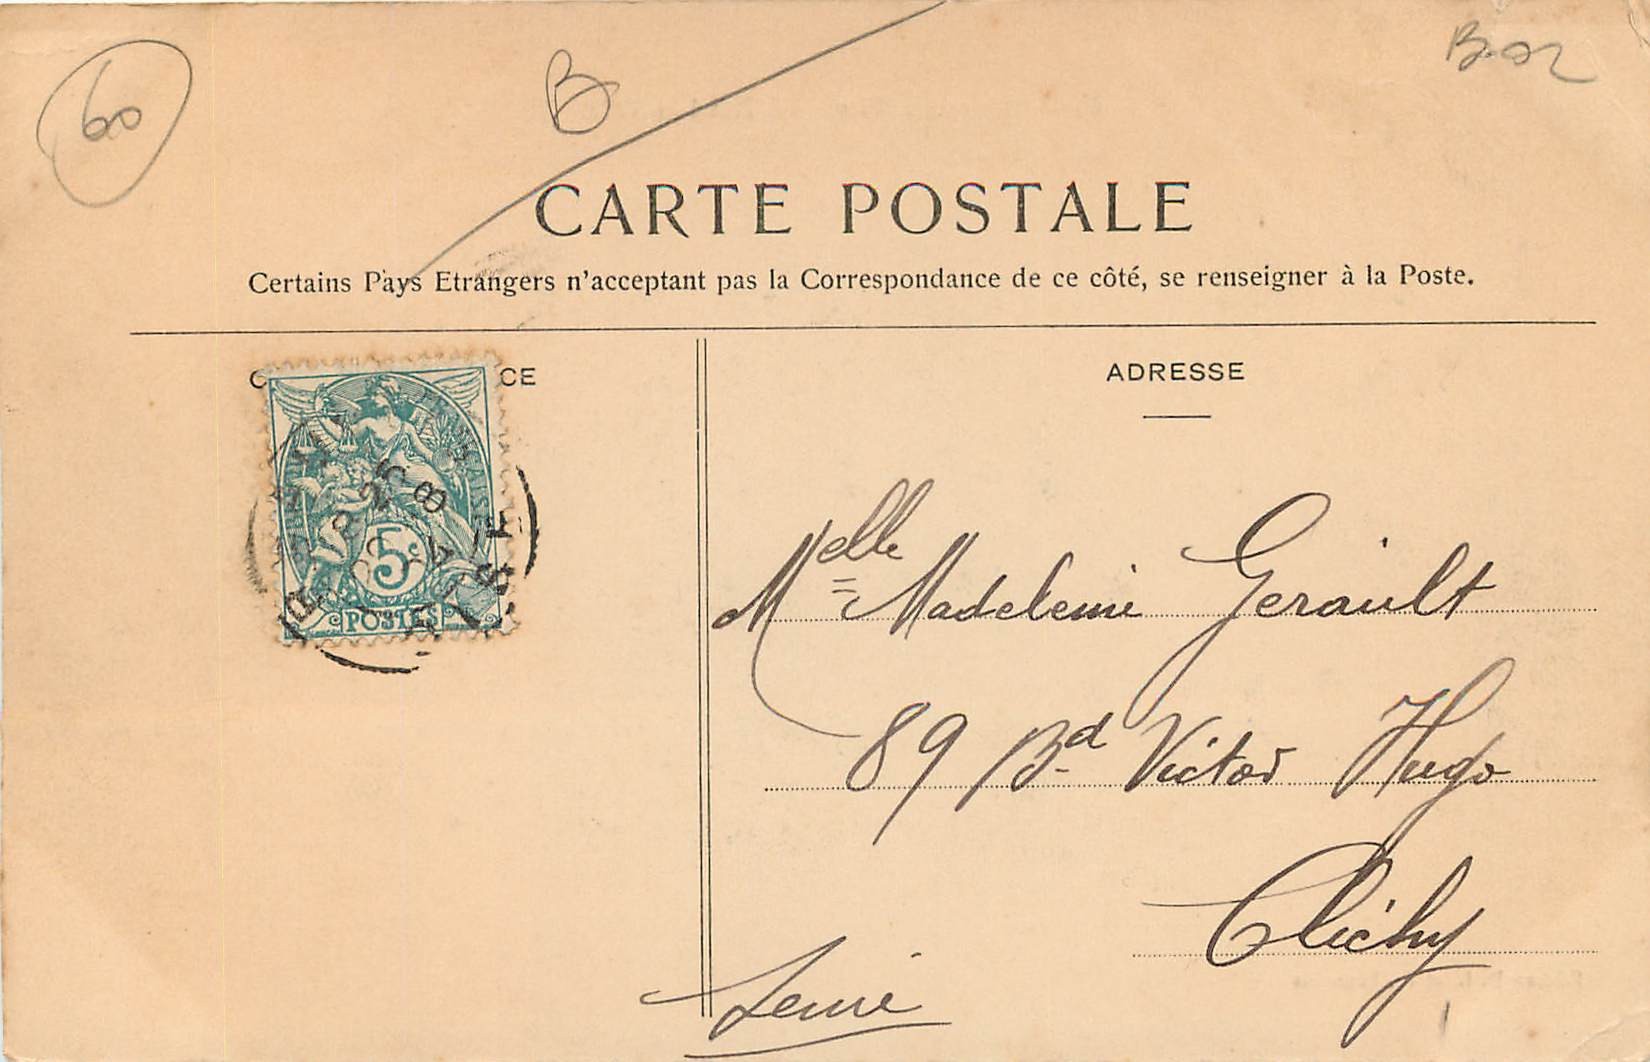 60
B
CARTE POSTALE
Certains Pays Etrangers n'acceptant pas la Correspondance de ce côté, se renseigner à la Poste.
CE
ADRESSE
5c
POSTES
Melle Madeleine Gerault
89 Bd Victor Hugo
Clichy
Seine